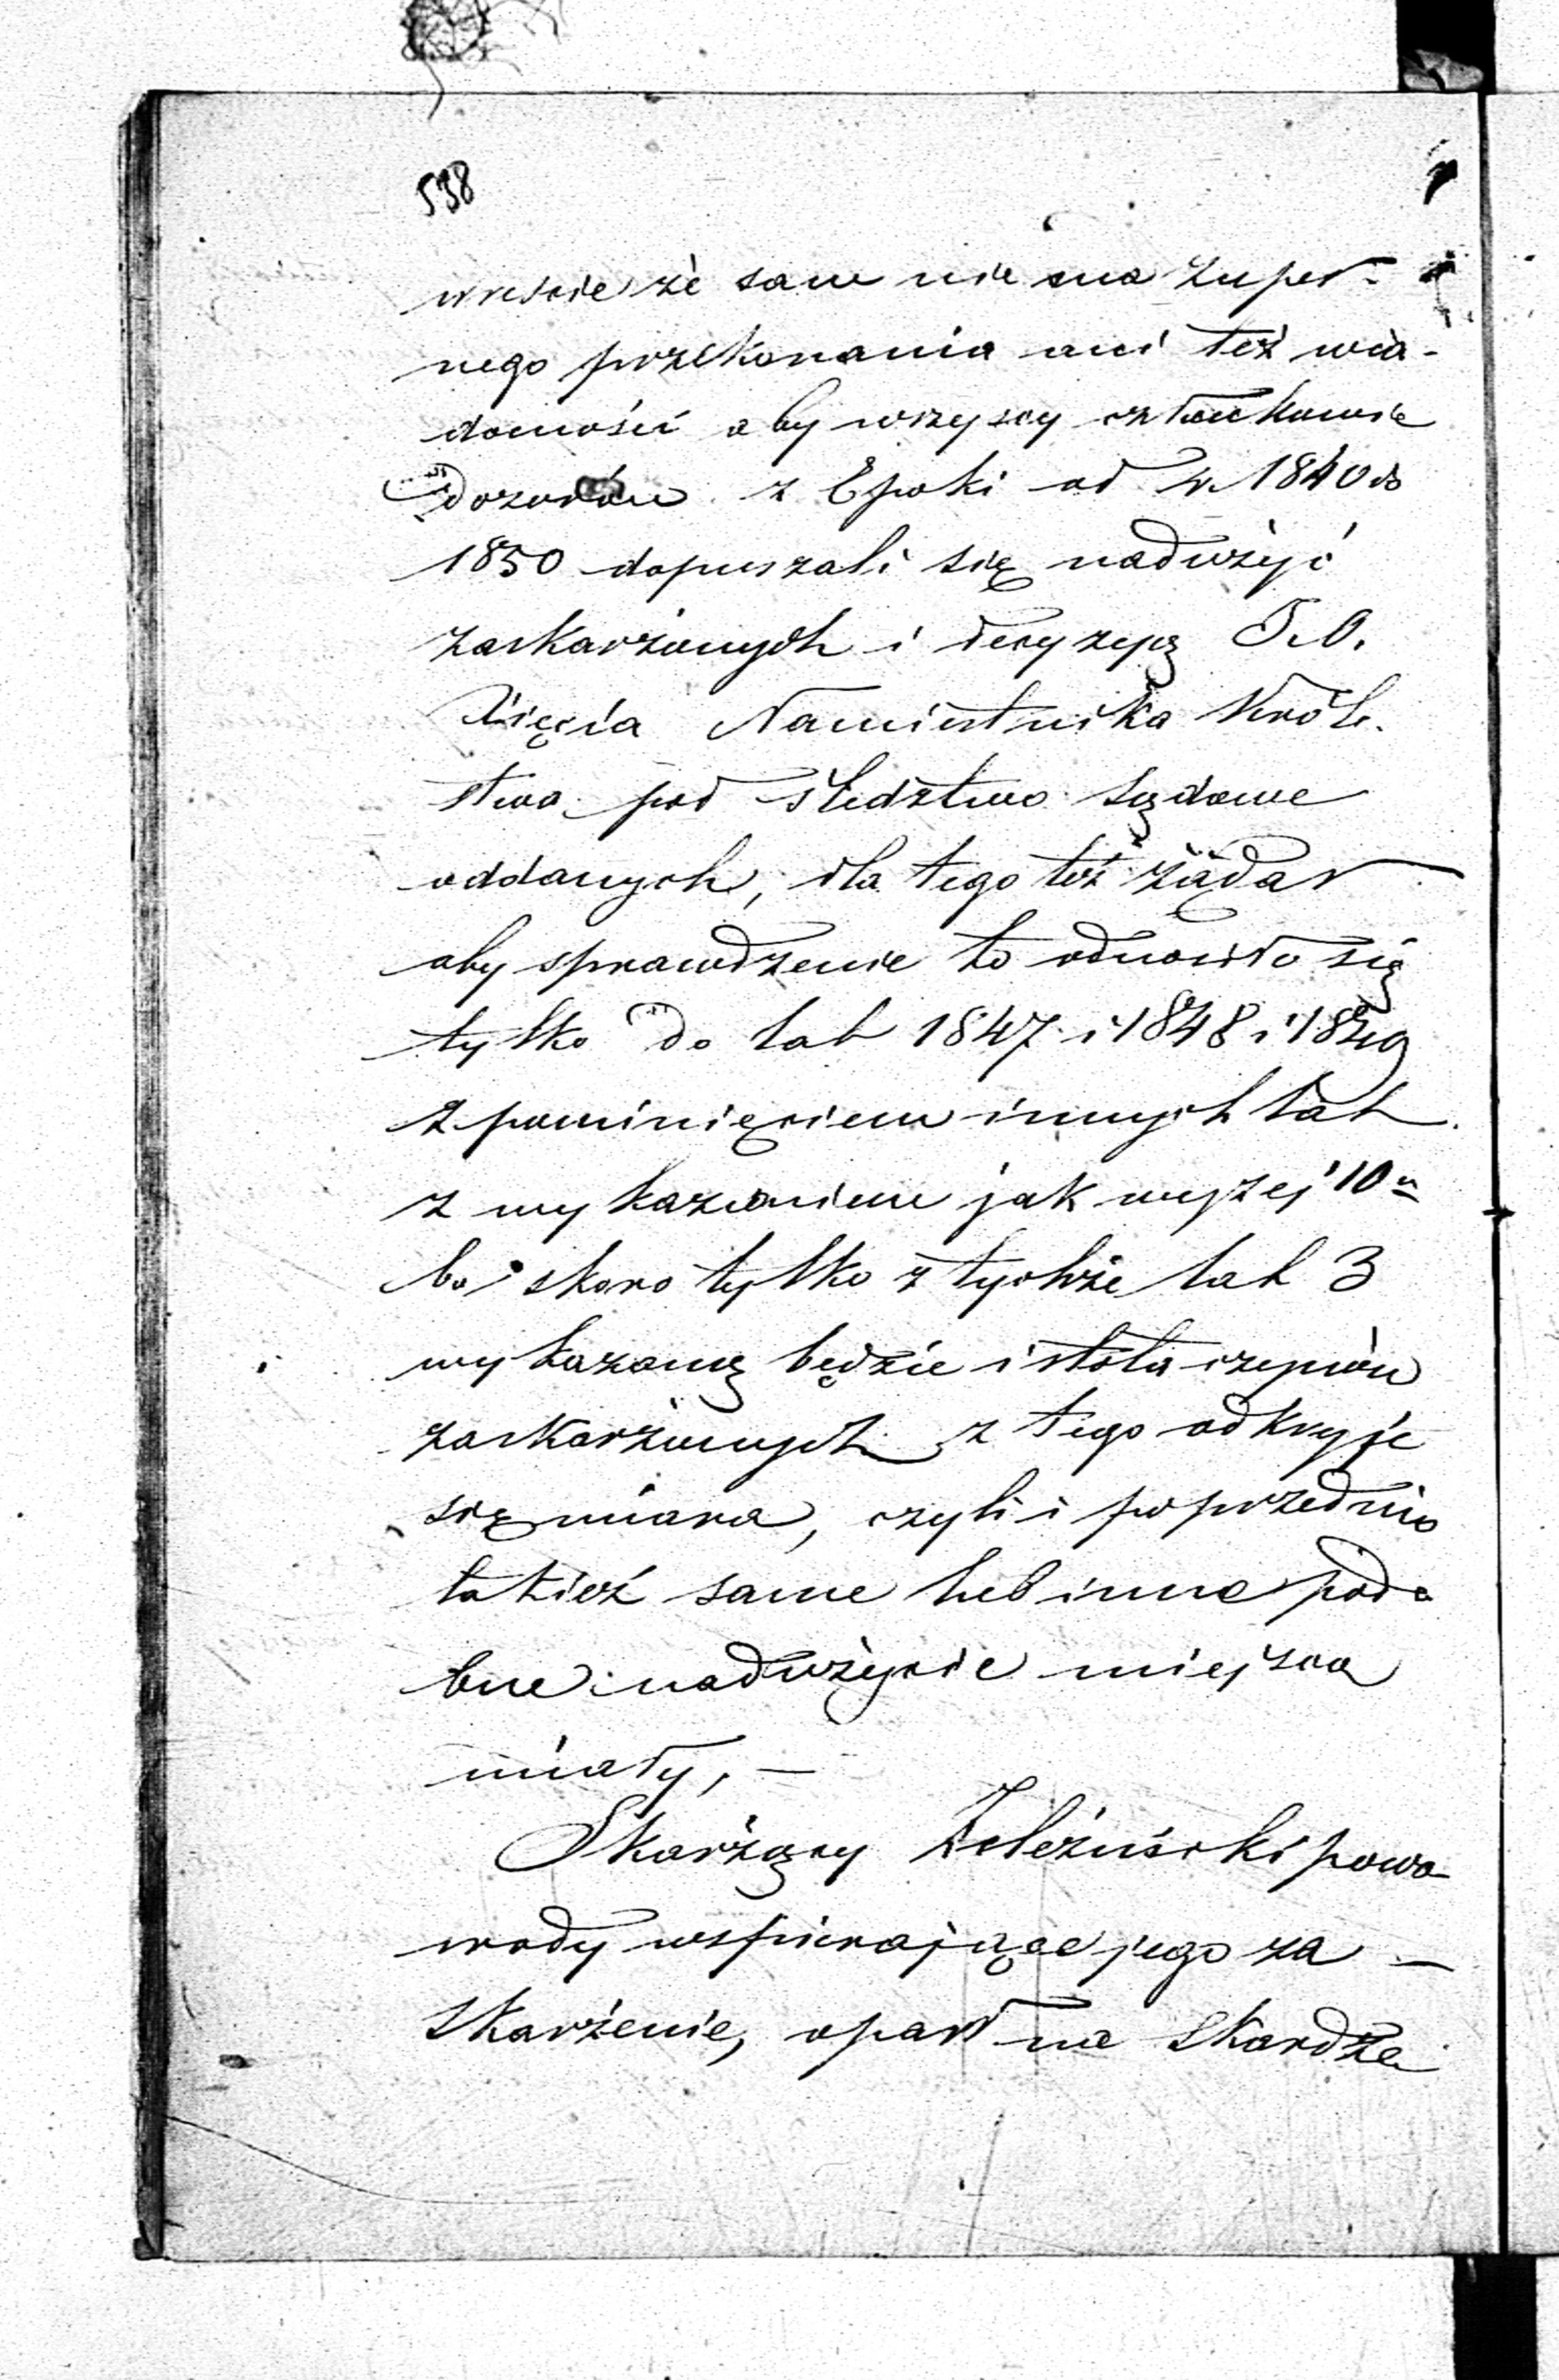 538
wreście że sam nie ma zupeł-
nego przekonania ani też wia-
domości aby wszyscy członkowie
Dozorów z Epoki od r. 1840 do
1850 dopuszali się nadużyć
zaskarżonych i decyzyą J. O.
Xięcia Namiestnika Króle-
stwa pod śledztwo sądowe
oddanych, dla tego też żądał
aby sprawdzenie to odnosiło się
tylko do lat 1847 i 1848 i 1849
z pominięciem innych lat
z wykazaniem jak wyżej 10u
bo skoro tylko z tychże lat 3
wykazaną będzie istota czynów
zaskarżonych z tego odkryje
się miara, czyli i poprzednio
takież same lub inne podo
bne nadużycie miejsca
miały, —
Skarżący Zeleźiński powo
wody wspierające jego za —
skarżenie, oparł na skardze